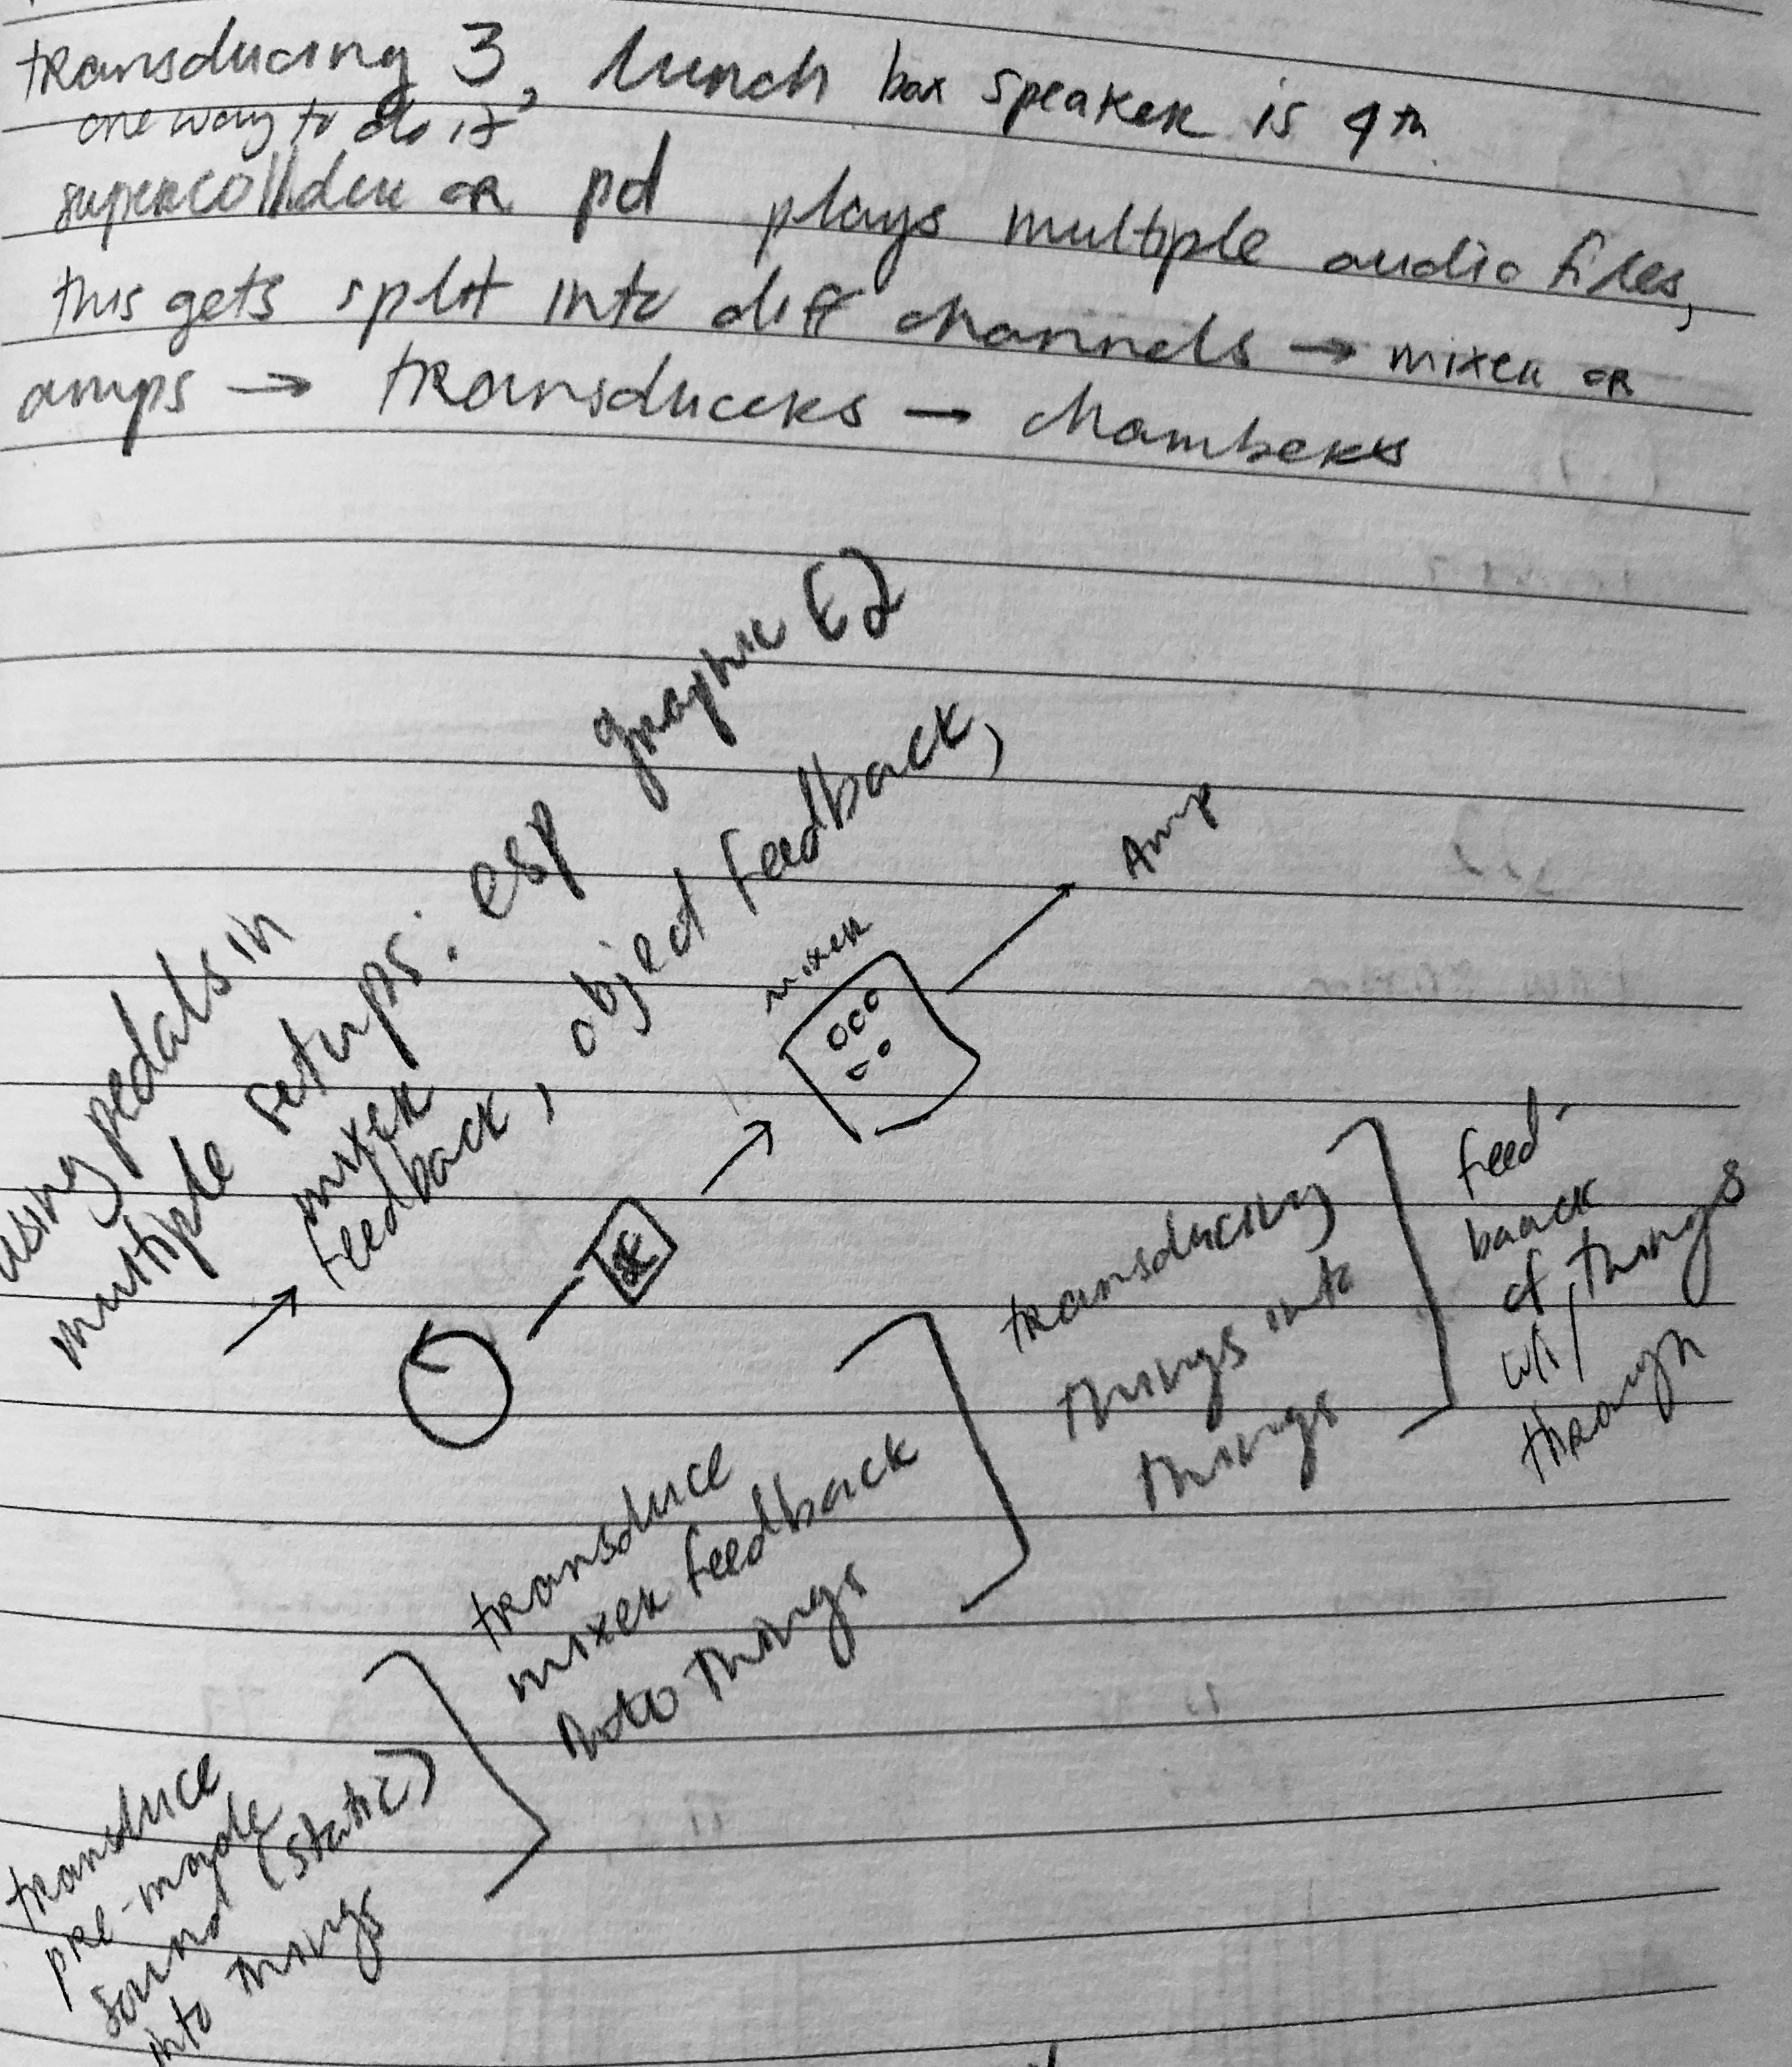 transducing 3, lunch box speaker is 4th
one way to do it
supercollider OR pd plays multiple audio files,
this gets split into diff channels → mixer OR
amps → transducers — chambers
using pedals in
multiple setups: esp graphic EQ
→ mixer
feedback, object feedback,
mixer
Amp
transduce
pre-made
sound (static)
into things
transduce
mixer feedback
into things
transducing
things into
things
feed-
baack
of things
w/
through